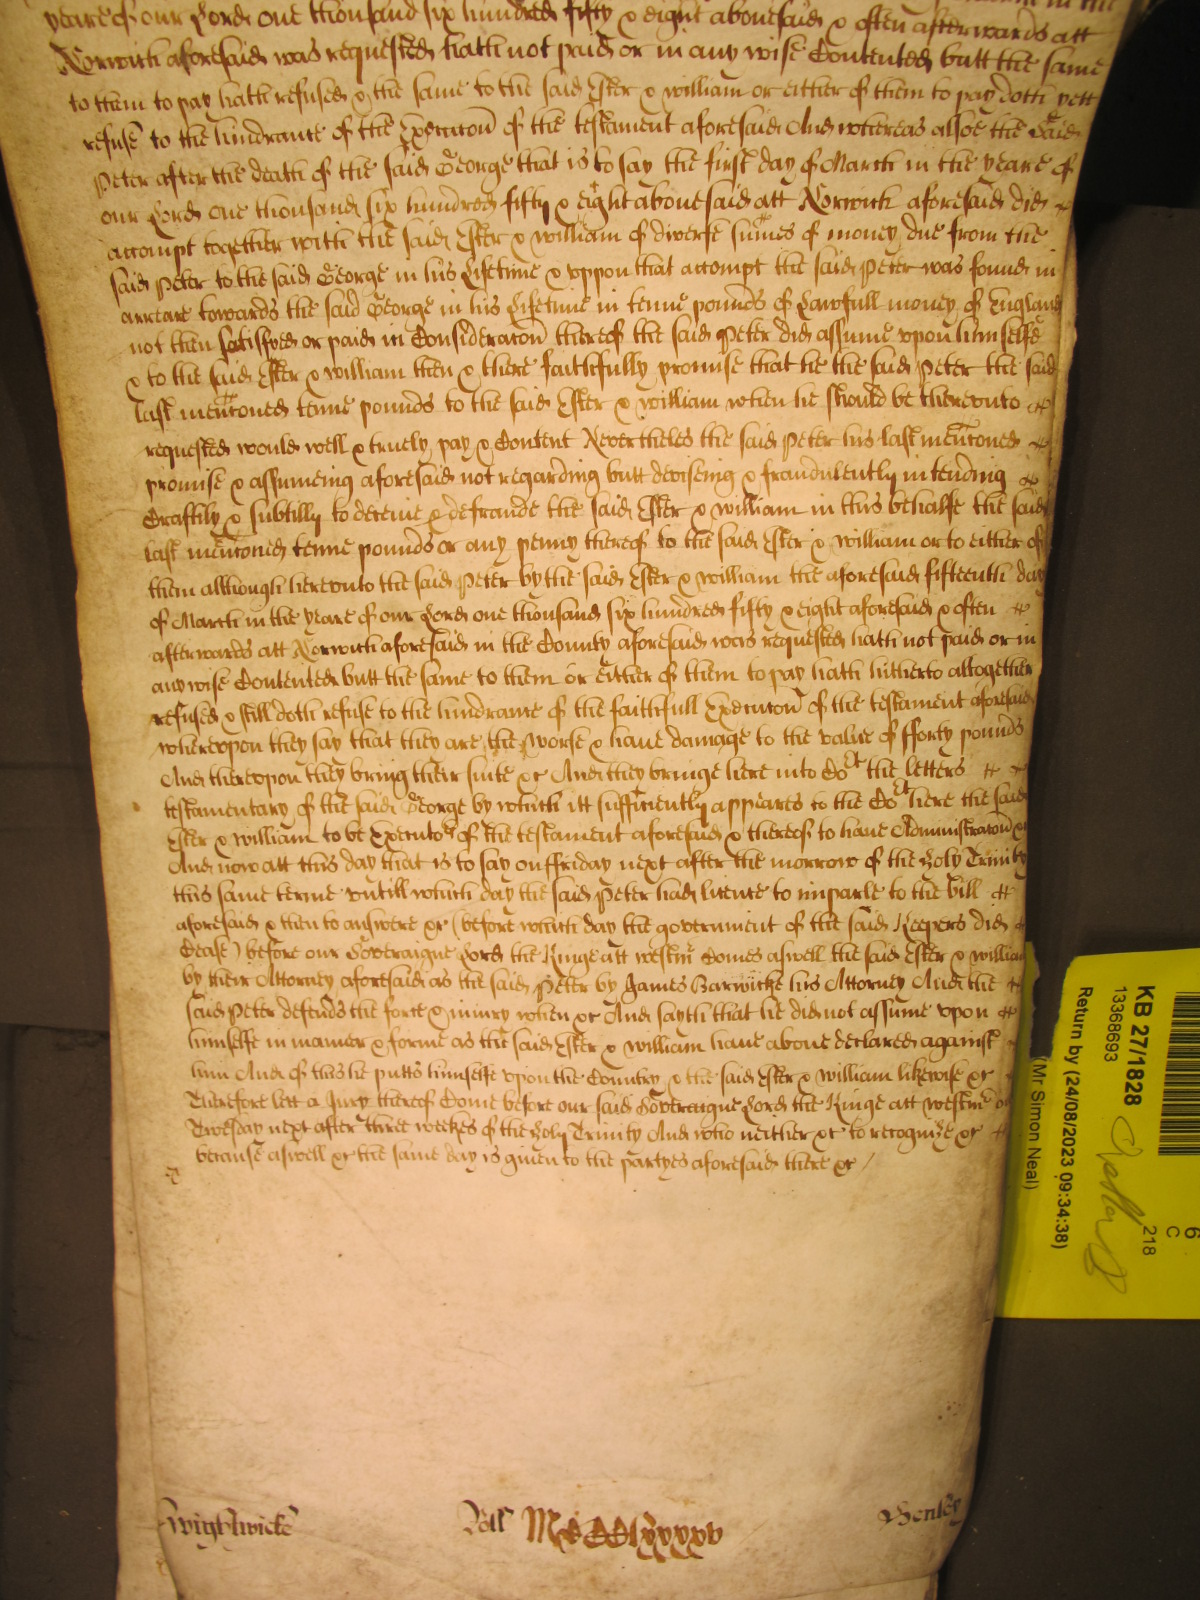 yeare of our Lord one thousand six hundred fifty & eight abovesaid & often afterwards att
Norwich aforesaid was requested hath not paid or in any wise Contented butt the same
to them to pay hath refused & the same to the said Ester & william or either of them to pay doth yett
refuse to the hindrance of the Execucon of the testament aforesaid And whereas alsoe the said
Peter after the death of the said George that is to say the first day of March in the yeare of
our Lord one thousand six hundred fifty & eight abovesaid att Norwich aforesaid did
accompt together with the said Ester & william of diverse sumes of money due from the
said Peter to the said George in his Lifetime & uppon that accompt the said Peter was found in
arreare towards the said George in his Lifetime in tenne pounds of Lawfull money of England
not then satisfyed or paid in Consideracon thereof the said Peter did assume upon himselfe
& to the said Ester & william then & there faithfully promise that he the said Peter the said
last menconed tenne pounds to the said Ester & william when he should be thereunto
requested would well & truely pay & Content Nevertheles the said Peter his last menconed
promise & assumeing aforesaid not regarding butt deviseing & fraudulently intending
Craftily & subtilly to deceive & defraude the said Ester & william in this behalfe the said
last menconed tenne pounds or any penny thereof to the said Ester & william or to either of
them although hereunto the said Peter by the said Ester & william the aforesaid fifteenth day
of March in the yeare of our Lord one thousand six hundred fifty & eight aforesaid & often
afterwards att Norwich aforesaid in the County aforesaid was requested hath not paid or in
any wise Contented butt the same to them or either of them to pay hath hitherto altogether
refused & still doth refuse to the hindrance of the faithfull Execucon of the testament aforesaid
whereupon they say that they are the worse & have damage to the value of fforty pounds
And thereupon they bring their suite &c And they bringe here into Cort the letters
testamentary of the said George by which itt sufficiently appeares to the Cort here the said
Ester & william to be Executors of the testament aforesaid & thereof to have Administracon &c
And now att this day that is to say on ffriday next after the morrow of the Holy Trinity
this same terme untill which day the said Peter had licence to imparle to the bill
aforesaid & then to answere &c (before which day the government of the said Keepers did
Cease) before our Soveraigne Lord the Kinge att westm Comes aswell the said Ester & william
by their Attorney aforesaid as the said Peter by James Barwicke his Attorney And the
said Peter defends the force & iniury when &c And sayth that he did not assume upon
himselfe in manner & forme as the said Ester & william have above declared against
him And of this he putts himselfe upon the Country & the said Ester & william likewise &c
Therefore lett a Jury thereof Come before our said Soveraigne Lord the Kinge att westm on
Twesday next after three weekes of the Holy Trinity And who neither &c to recognize &c
because aswell &c the same day is given to the partyes aforesaid there &c /
Wightwicke
Roll MCCClxxxxv
Henley
KB 27/1828
13368693
Return by (24/08/2023 09:34:38)
(Mr Simon Neal)
218
C
6